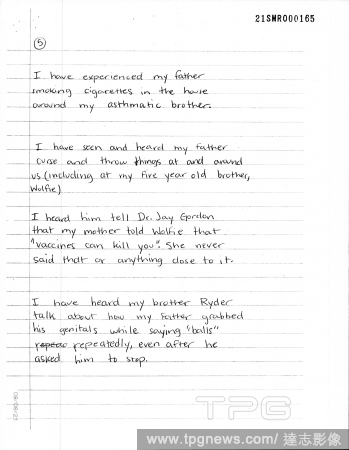 21SMRO00165
5
I have experienced my father
smoking cigarettes in the house
around my asthmatic brother.
I have seen and heard my father
curse and throw things at and around
us (including at my five year old brother,
Wolfie)
I heard him tell Dr. Jay Gordon
that my mother told Wolfie that
"vaccines can kill you". She never
said that or anything close to it.
I have heard my brother Ryder
talk about how my father grabbed
his genitals while saying "balls"
repeatedly, even after he
asked him to stop.
TPG
www.tpgnews.com/達志影像